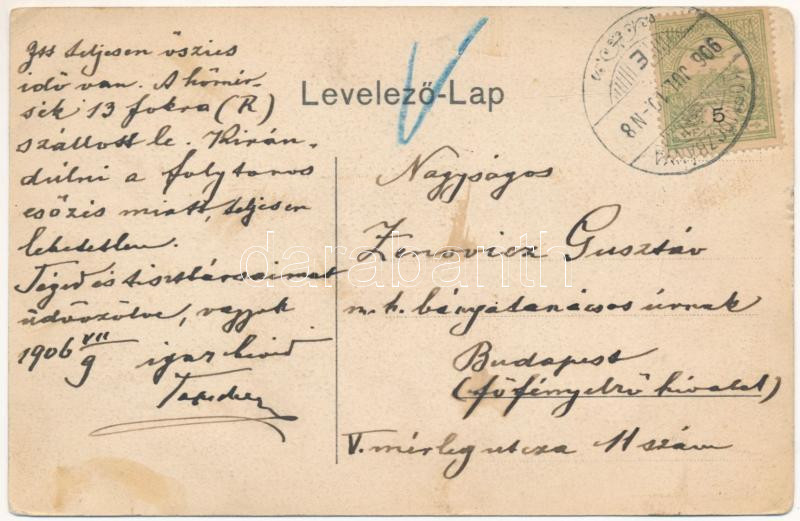 Levelező-Lap
Itt teljesen őszies
idő van. A hőmér-
sék 13 fokra (R)
szállott le. Kirán-
dúlni a folytonos
esőzés miatt, teljesen
lehetetlen.
Téged és tiszttársaimat
üdvözölve, vagyok
1906 VII
9 igaz hived
Nagyságos
Zenovicz Gusztáv
m. k. bányatanácsos úrnak
Budapest
(főfényelző hivatal)
V. mérleg utcza 11 szám
906 JUL 10 - N8
5
darabanth